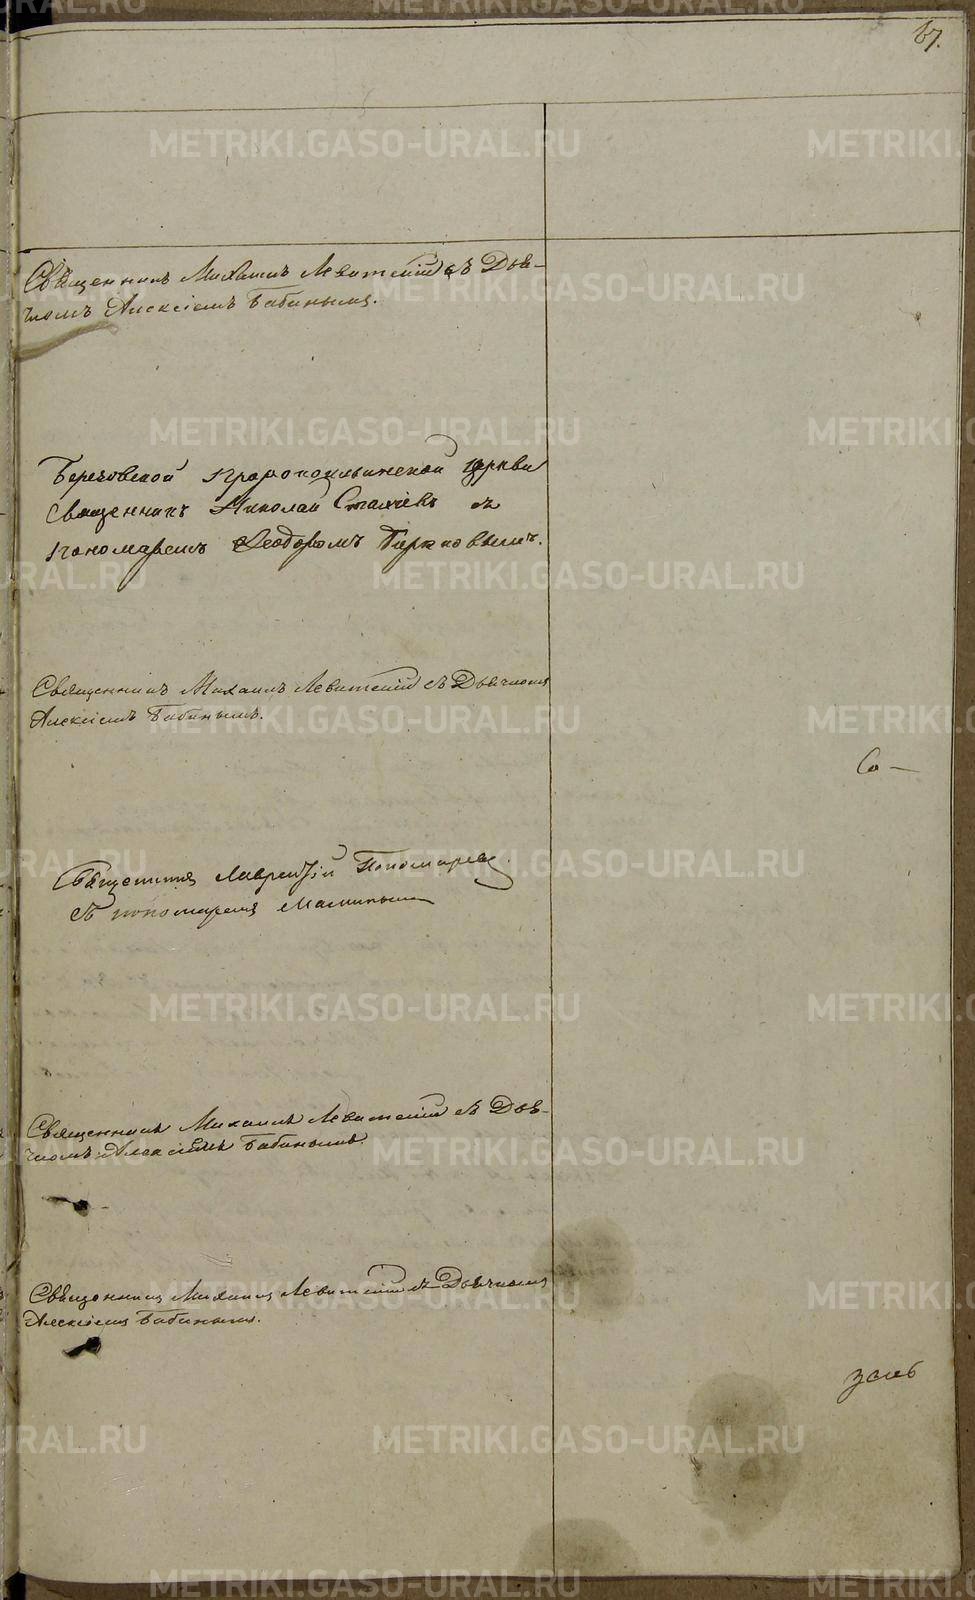 67.
Священникъ Михаилъ Левитскій съ Дья-
чкомъ Алексіемъ Бабинымъ.
Березовской Пророкоильинской церкви
Священникъ Николай Стахіевъ съ
пономаремъ Ѳеодоромъ
Священникъ Михаилъ Левитскій съ Дьячкомъ
Алексіемъ Бабинымъ.
Со —
Священникъ Лаврентій Пономаревъ
съ пономаремъ
Священникъ Михаилъ Левитскій съ Дья-
чкомъ Алексіемъ Бабинымъ
Священникъ Михаилъ Левитскій съ Дьячкомъ
Алексіемъ Бабинымъ.
METRIKI.GASO-URAL.RU